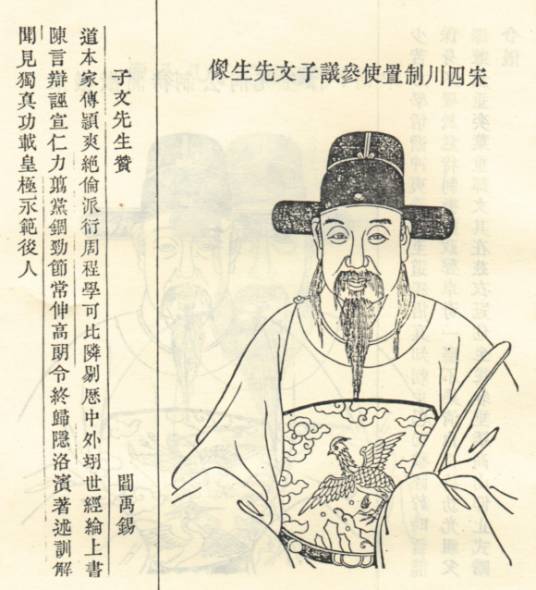 宋四川制置使參議子文先生像
子文先生贊 閻禹錫
道本家傳穎爽絕倫派衍周程學可比隣剔厯中外翊世經綸上書
陳言辯誣宣仁力翦黨錮勁節常伸高朗令終歸隱洛濱著述訓解
聞見獨真功載皇極示範後人